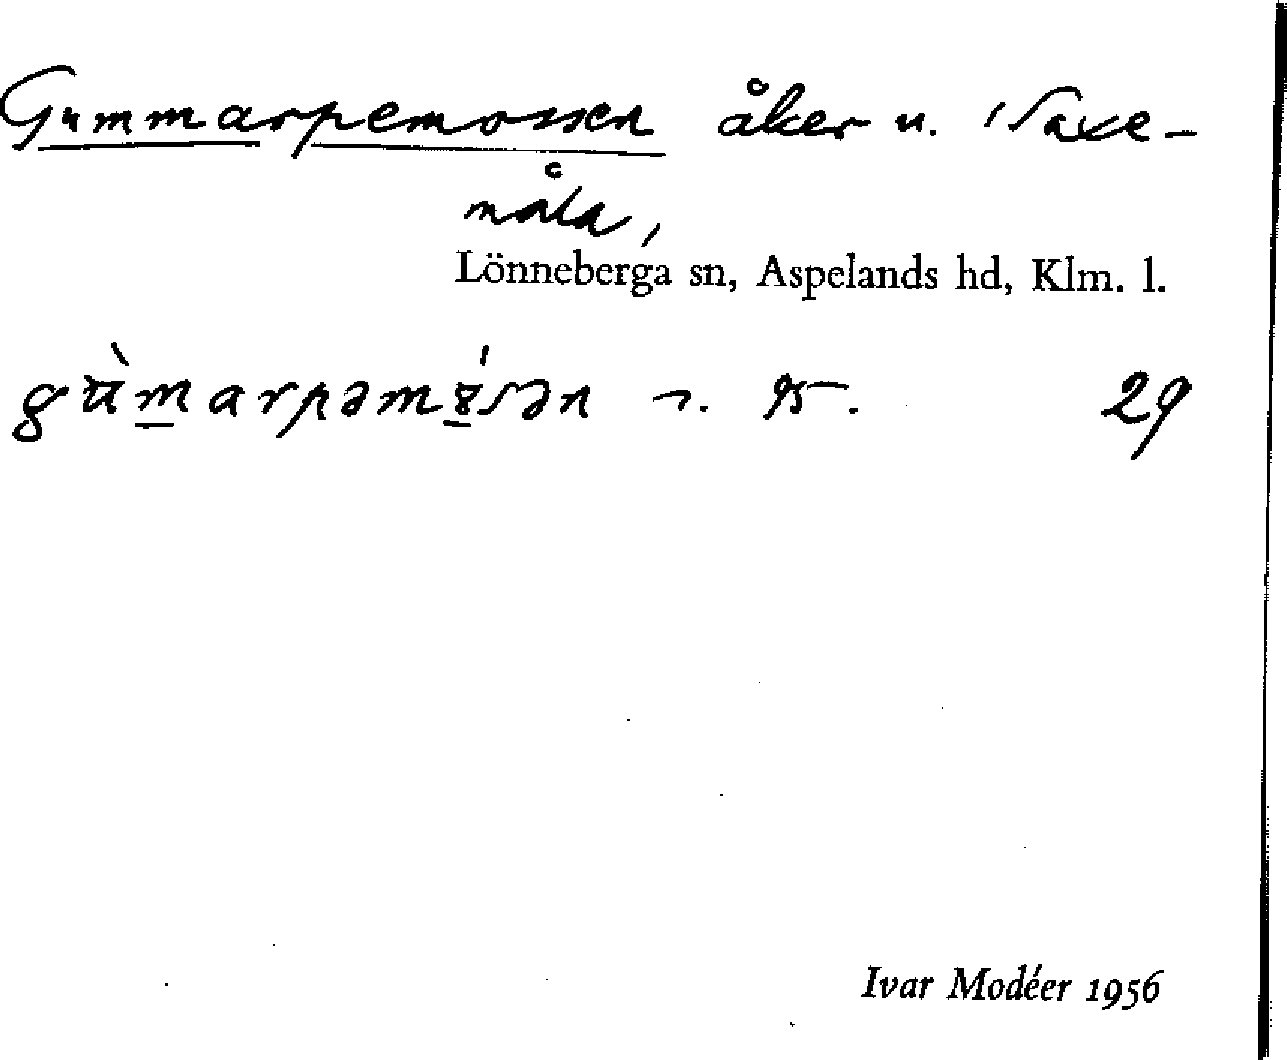 Gummarpemossen åker u. Saxe-
måla,
Lönneberga sn, Aspelands hd, Klm. l.
gùmarpəmósən
29
Ivar Modéer 1956